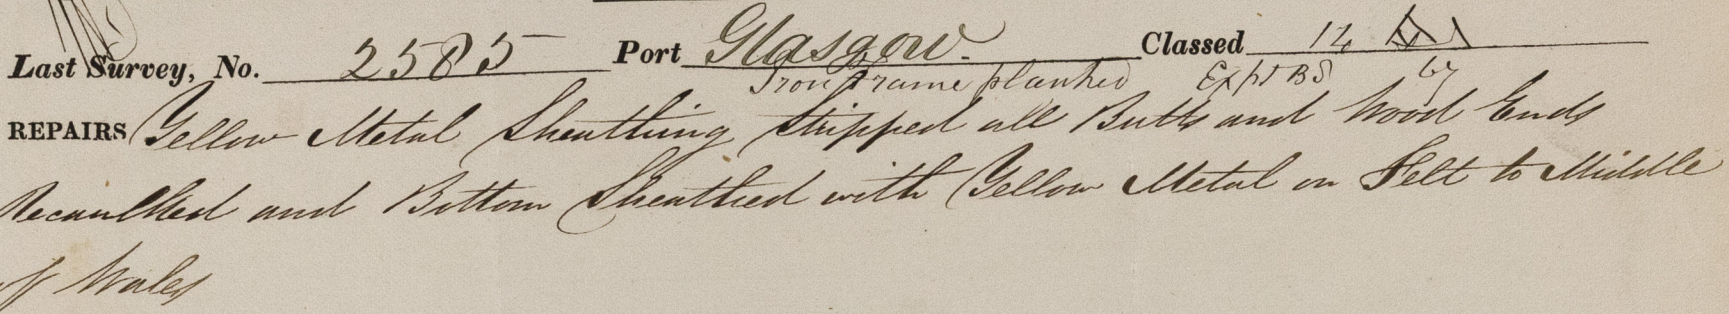 Last Survey, No. 2585 Port Glasgow. Classed 14
Iron frame planked Expt BS 67
REPAIRS Yellow Metal Sheathing stripped all Butts and Wood Ends
Recaulked and Bottom Sheathed with Yellow Metal on Felt to Middle
of Wales